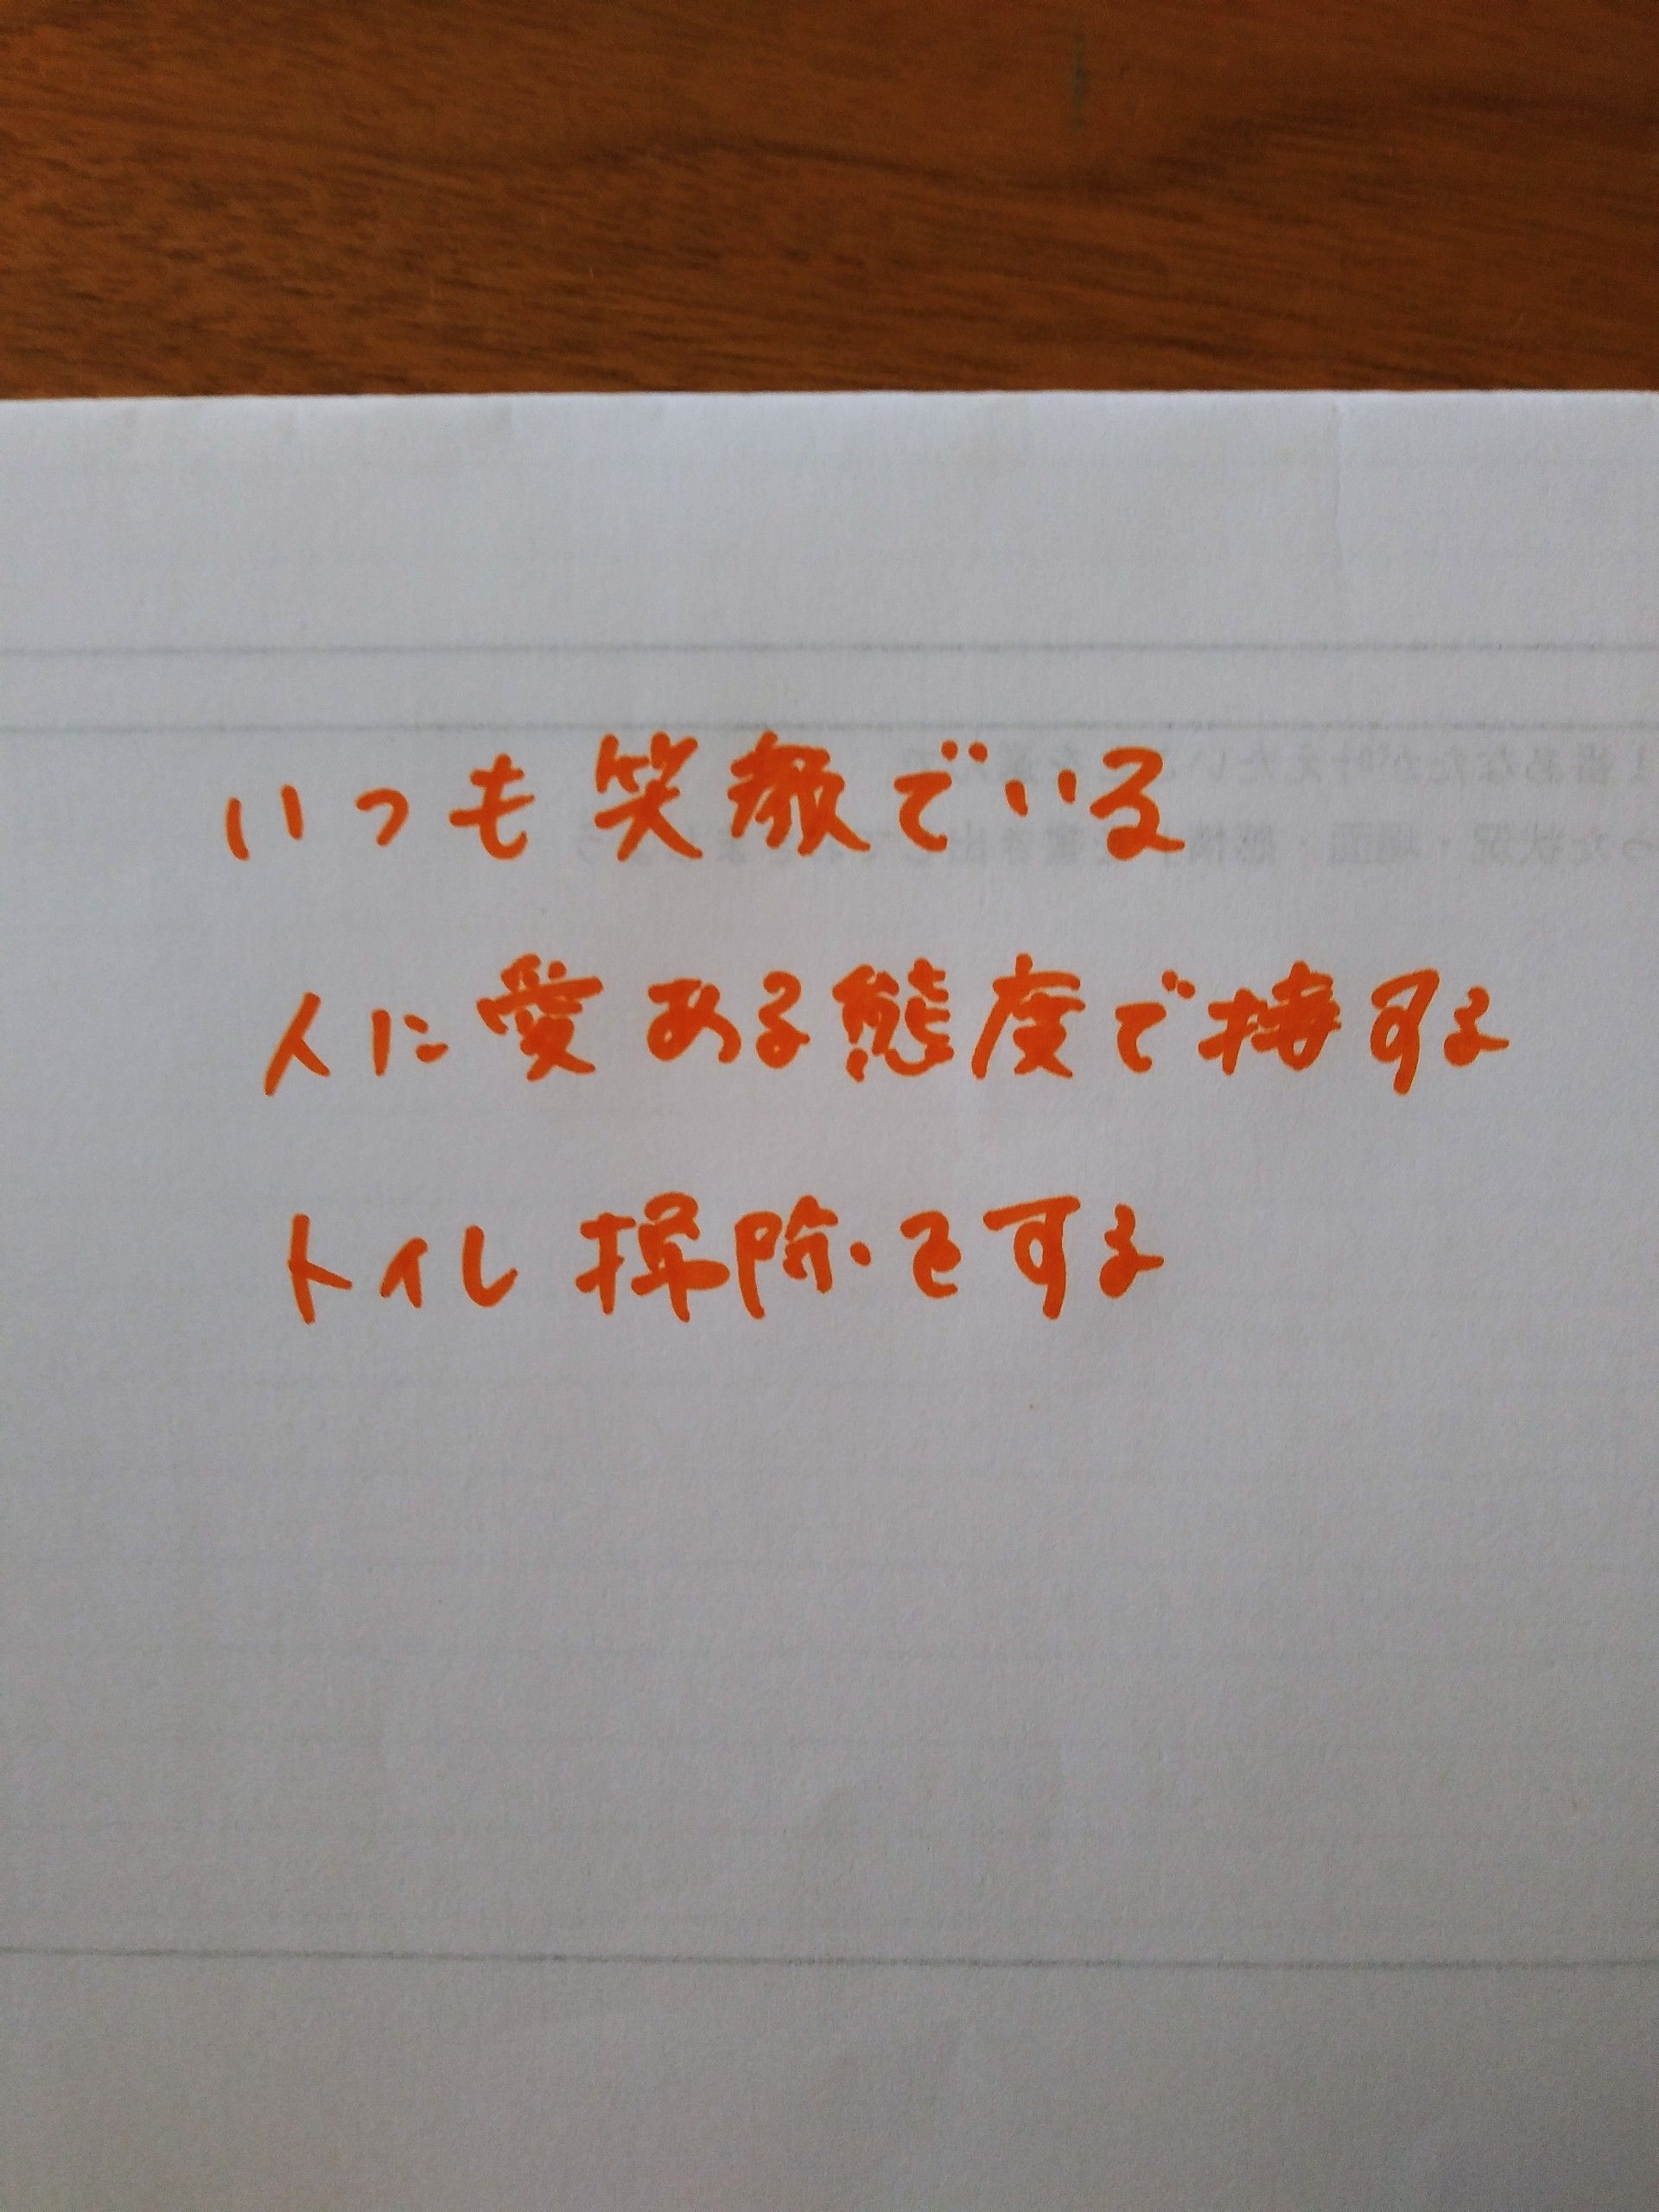 いつも笑顔でいる
人に愛ある態度で接する
トイレ掃除をする